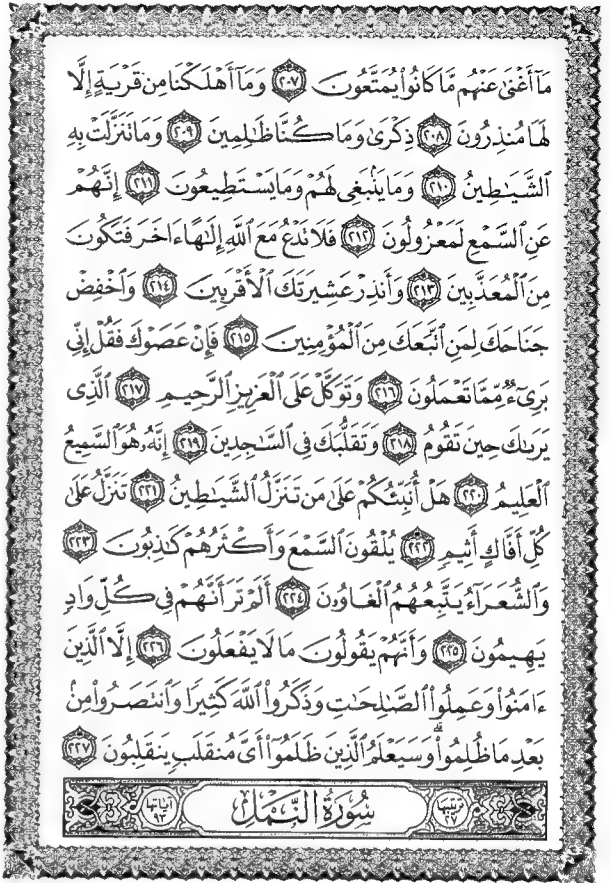 مَآ أَغْنَىٰ عَنْهُم مَّا كَانُوا۟ يُمَتَّعُونَ ٢٠٧ وَمَآ أَهْلَكْنَا مِن قَرْيَةٍ إِلَّا
لَهَا مُنذِرُونَ ٢٠٨ ذِكْرَىٰ وَمَا كُنَّا ظَٰلِمِينَ ٢٠٩ وَمَا تَنَزَّلَتْ بِهِ
ٱلشَّيَٰطِينُ ٢١٠ وَمَا يَنۢبَغِى لَهُمْ وَمَا يَسْتَطِيعُونَ ٢١١ إِنَّهُمْ
عَنِ ٱلسَّمْعِ لَمَعْزُولُونَ ٢١٢ فَلَا تَدْعُ مَعَ ٱللَّهِ إِلَٰهًا ءَاخَرَ فَتَكُونَ
مِنَ ٱلْمُعَذَّبِينَ ٢١٣ وَأَنذِرْ عَشِيرَتَكَ ٱلْأَقْرَبِينَ ٢١٤ وَٱخْفِضْ
جَنَاحَكَ لِمَنِ ٱتَّبَعَكَ مِنَ ٱلْمُؤْمِنِينَ ٢١٥ فَإِنْ عَصَوْكَ فَقُلْ إِنِّى
بَرِىٓءٌ مِّمَّا تَعْمَلُونَ ٢١٦ وَتَوَكَّلْ عَلَى ٱلْعَزِيزِ ٱلرَّحِيمِ ٢١٧ ٱلَّذِى
يَرَىٰكَ حِينَ تَقُومُ ٢١٨ وَتَقَلُّبَكَ فِى ٱلسَّٰجِدِينَ ٢١٩ إِنَّهُۥ هُوَ ٱلسَّمِيعُ
ٱلْعَلِيمُ ٢٢٠ هَلْ أُنَبِّئُكُمْ عَلَىٰ مَن تَنَزَّلُ ٱلشَّيَٰطِينُ ٢٢١ تَنَزَّلُ عَلَىٰ
كُلِّ أَفَّاكٍ أَثِيمٍ ٢٢٢ يُلْقُونَ ٱلسَّمْعَ وَأَكْثَرُهُمْ كَٰذِبُونَ ٢٢٣
وَٱلشُّعَرَآءُ يَتَّبِعُهُمُ ٱلْغَاوُۥنَ ٢٢٤ أَلَمْ تَرَ أَنَّهُمْ فِى كُلِّ وَادٍ
يَهِيمُونَ ٢٢٥ وَأَنَّهُمْ يَقُولُونَ مَا لَا يَفْعَلُونَ ٢٢٦ إِلَّا ٱلَّذِينَ
ءَامَنُوا۟ وَعَمِلُوا۟ ٱلصَّٰلِحَٰتِ وَذَكَرُوا۟ ٱللَّهَ كَثِيرًا وَٱنتَصَرُوا۟ مِنۢ
بَعْدِ مَا ظُلِمُوا۟ ۗ وَسَيَعْلَمُ ٱلَّذِينَ ظَلَمُوٓا۟ أَىَّ مُنقَلَبٍ يَنقَلِبُونَ ٢٢٧
ترتيبها ٢٧ سُورَةُ النَّمْل آياتها ٩٣